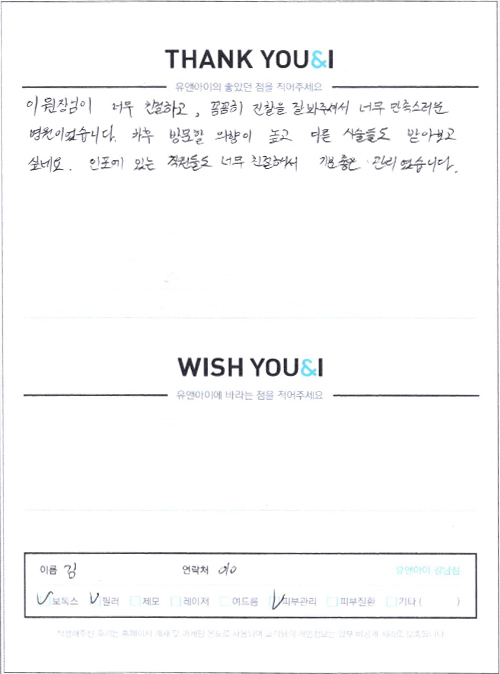 THANK YOU&I
유앤아이의 좋았던 점을 적어주세요
이원장님이 너무 친절하고, 꼼꼼히 진찰을 잘 봐주셔서 너무 만족스러운
병원이었습니다. 차후 방문할 의향이 높고 다른 시술들도 받아보고
싶네요. 인포에 있는 직원들도 너무 친절해서 기분 좋은 관리였습니다.
WISH YOU&I
유앤아이에 바라는 점을 적어주세요
이름 김 연락처 010 유앤아이 강남점
보톡스 필러 제모 레이저 여드름 피부관리 피부질환 기타 ( )